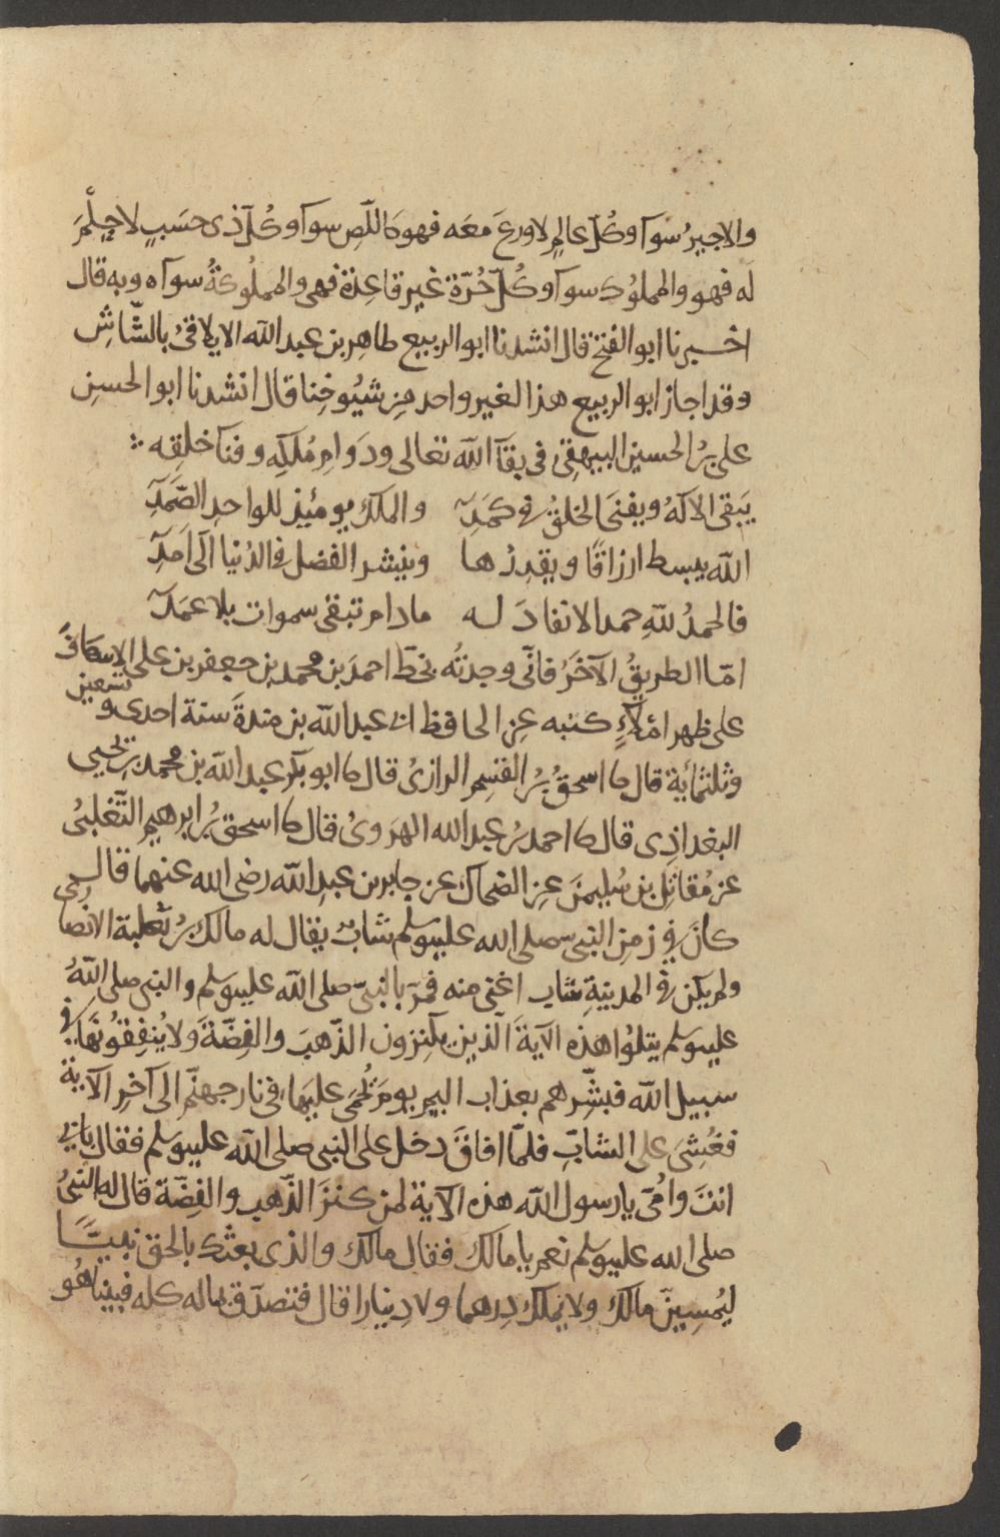 والاجيرُ سَوآ وكُلّ عالمٍ لا ورعَ معَه فهو كاللّصِ سوآ وكُلّ ذى حسَبٍ لا حِلْمَ
له فهو والمملوُك سوآ وكُلّ حُرّة غيرِ قاعِدة فهى والمَملُوكةُ سوآ ه وبه قال
اخبرنا ابو الفتح قال انشدنا ابو الربيع طاهِر بن عبد الله الايلاقىُ بالشّاشِ
وقد اجاز ابو الربيع هذا لغير واحد مِن شيُوخِنا قال انشدنا ابو الحسن
على بنُ الحسين البيهقى فى بقآ الله تعالى ودَوامِ مُلكِه وفنآ خلقِه
يَبقى الالَهُ ويفنَى الخلقُ فى كمَدٍ والملك يومئذٍ للواحدِ الصَّمَدِ
الله يبسط ارزاقًا ويقدِرُها وينشر الفضل فى الدُنيا الى امَدٍ
فالحمدُ للّهِ حمدا لا نفادَ له مادام تبقى سموات بلا عمَدٍ
امّا الطريقُ الآخَرُ فانّى وجدتُه بخطّ احمدَ بن محمد بن جعفر بن على الاسكافَ
على ظهر امْلآءٍ كتبه عن الحافظ ابى عبد الله بن مندةَ سنة احدى وتسعين
وثلثمائة قال نا اسحقُ بنُ القسِم الرازىُ قال نا ابو بكر عبد الله بن محمد بن يحيى
البغداذى قال نا احمد بنُ عبد الله الهرَوىُ قال نا اسحق بنُ ابرهيم التَّغلبىُ
عن مُقاتِل بن سُليمنَ عن الضحاك عن جابر بن عبدِ اللّه رضى الله عنهما قال
كان فى زمنِ النبى صلى الله عليه وسلم شابٌ يقال له مالك بنُ ثعلبة الانصارى
ولم يكن فى المدينةِ شاب اغنى منه فمرّ بالنبىّ صلى الله عليه وسلم والنبى صلى اللّهُ
عليه وسلم يتلوُا هذه الآيةَ الذين يكنِزون الذّهبَ والفِضّةَ ولا يُنفِقوُنهَا فى
سبيل اللّه فبشّرهم بعذاب اليم يومَ يُحمَى عليهَا فى نار جهنّم الى آخِر الآية
فغُشِىَ على الشابّ فلمّا افاقَ دخل على النبى صلى الله عليه وسلم فقال بابى
انتَ واُمّى يا رسول اللّه هذه الآية لمن كنزَ الذّهب والفِضّة قال له النبىُ
صلى الله عليه وسلم نعم يا مالك فقال مالك والذى بعثك بالحق نبيًّا
ليُمسِينّ مالك ولا يَملك دِرهما ولا دِينارا قال فتصدّق بماله كله فبينا هُو